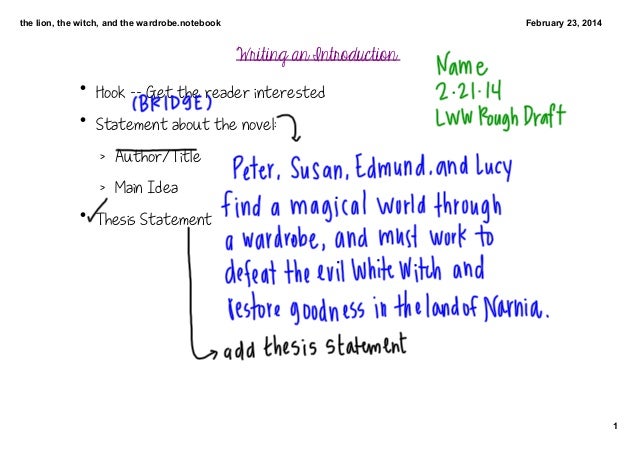 the lion, the witch, and the wardrobe.notebook
February 23, 2014
Writing an Introduction
Name
2.21.14
LWW Rough Draft
• Hook -- Get the reader interested
(BRIDGE)
• Statement about the novel:
> Author/Title
> Main Idea
• Thesis Statement
Peter, Susan, Edmund, and Lucy
find a magical world through
a wardrobe, and must work to
defeat the evil White Witch and
restore goodness in the land of Narnia.
add thesis statement
1